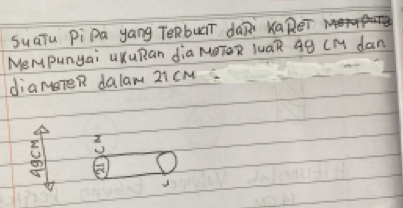 Suatu Pipa yang Terbuat dari Karet
Mempunyai ukuran diameter luar 49 CM dan
diameter dalam 21 CM
49CM
21 CM